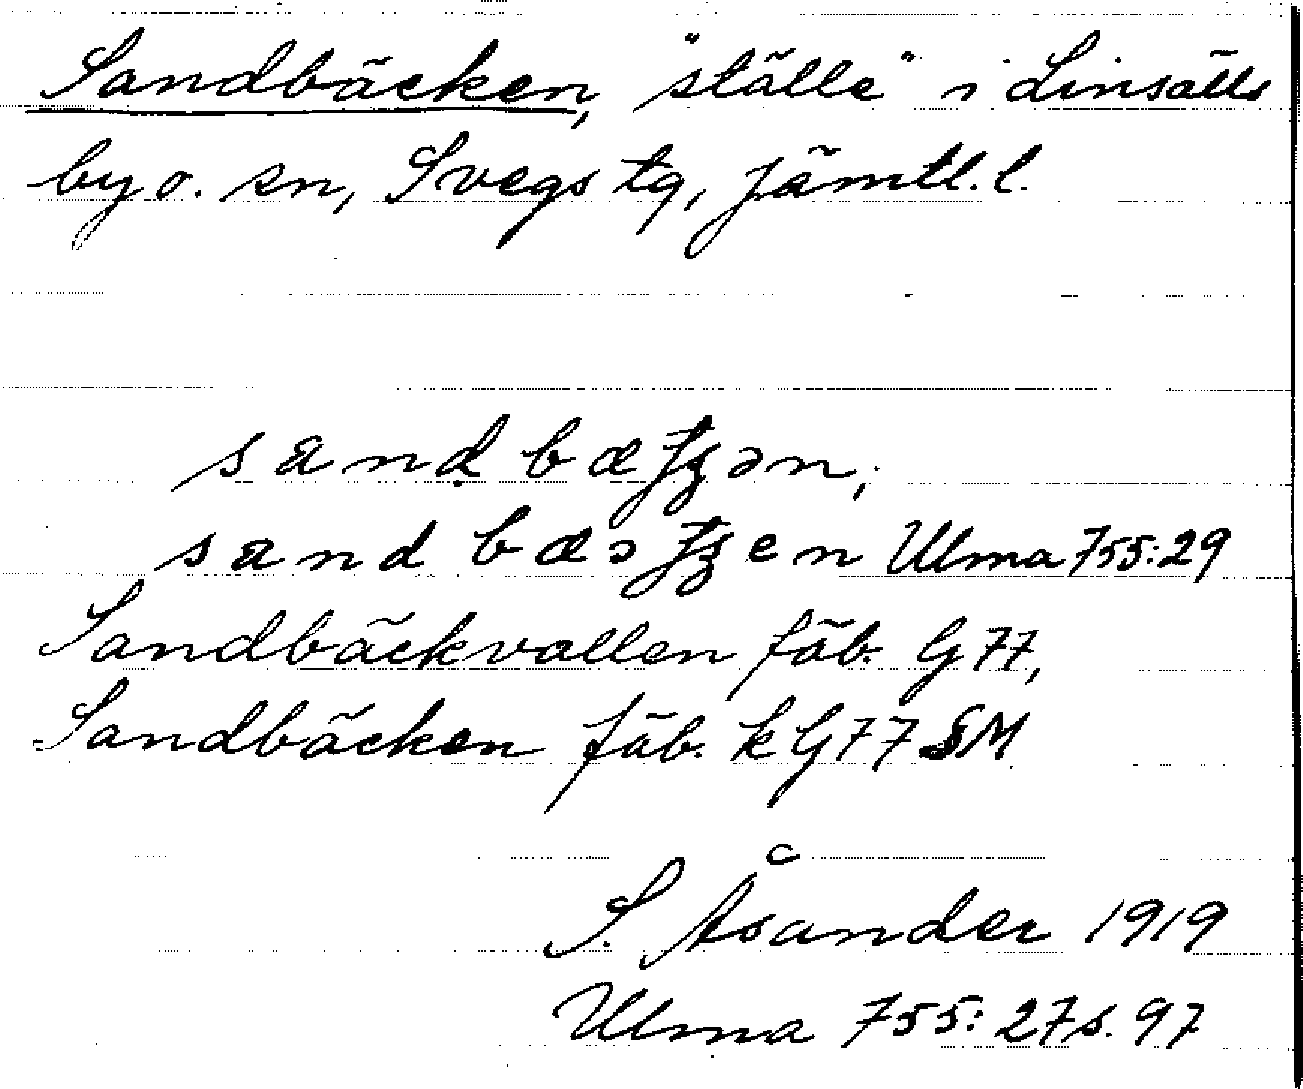 Sandbäcken, "ställe" i Linsälls
by o. sn, Svegs tg, Jämtl. l.
Ulma 755:29
Sandbäckvallen fäb. G 77,
Sandbäcken fäb. k G 77 SM
S. Åsander 1919
Ulma 755:27 s. 97